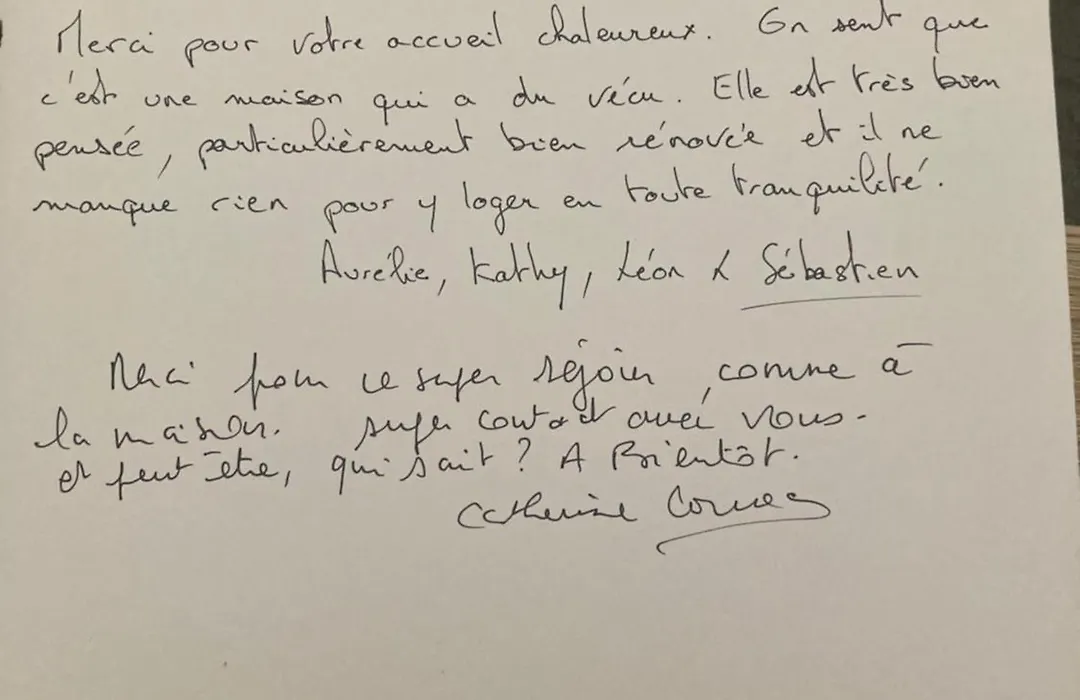 Merci pour votre accueil chaleureux. On sent que
c'est une maison qui a du vécu. Elle est très bien
pensée, particulièrement bien rénovée et il ne
manque rien pour y loger en toute tranquilité.
Aurélie, Kathy, Léon & Sébastien
Merci pour ce super séjour, comme à
la maison. super contact avec vous.
et peut être, qui sait ? A Bientôt.
Catherine